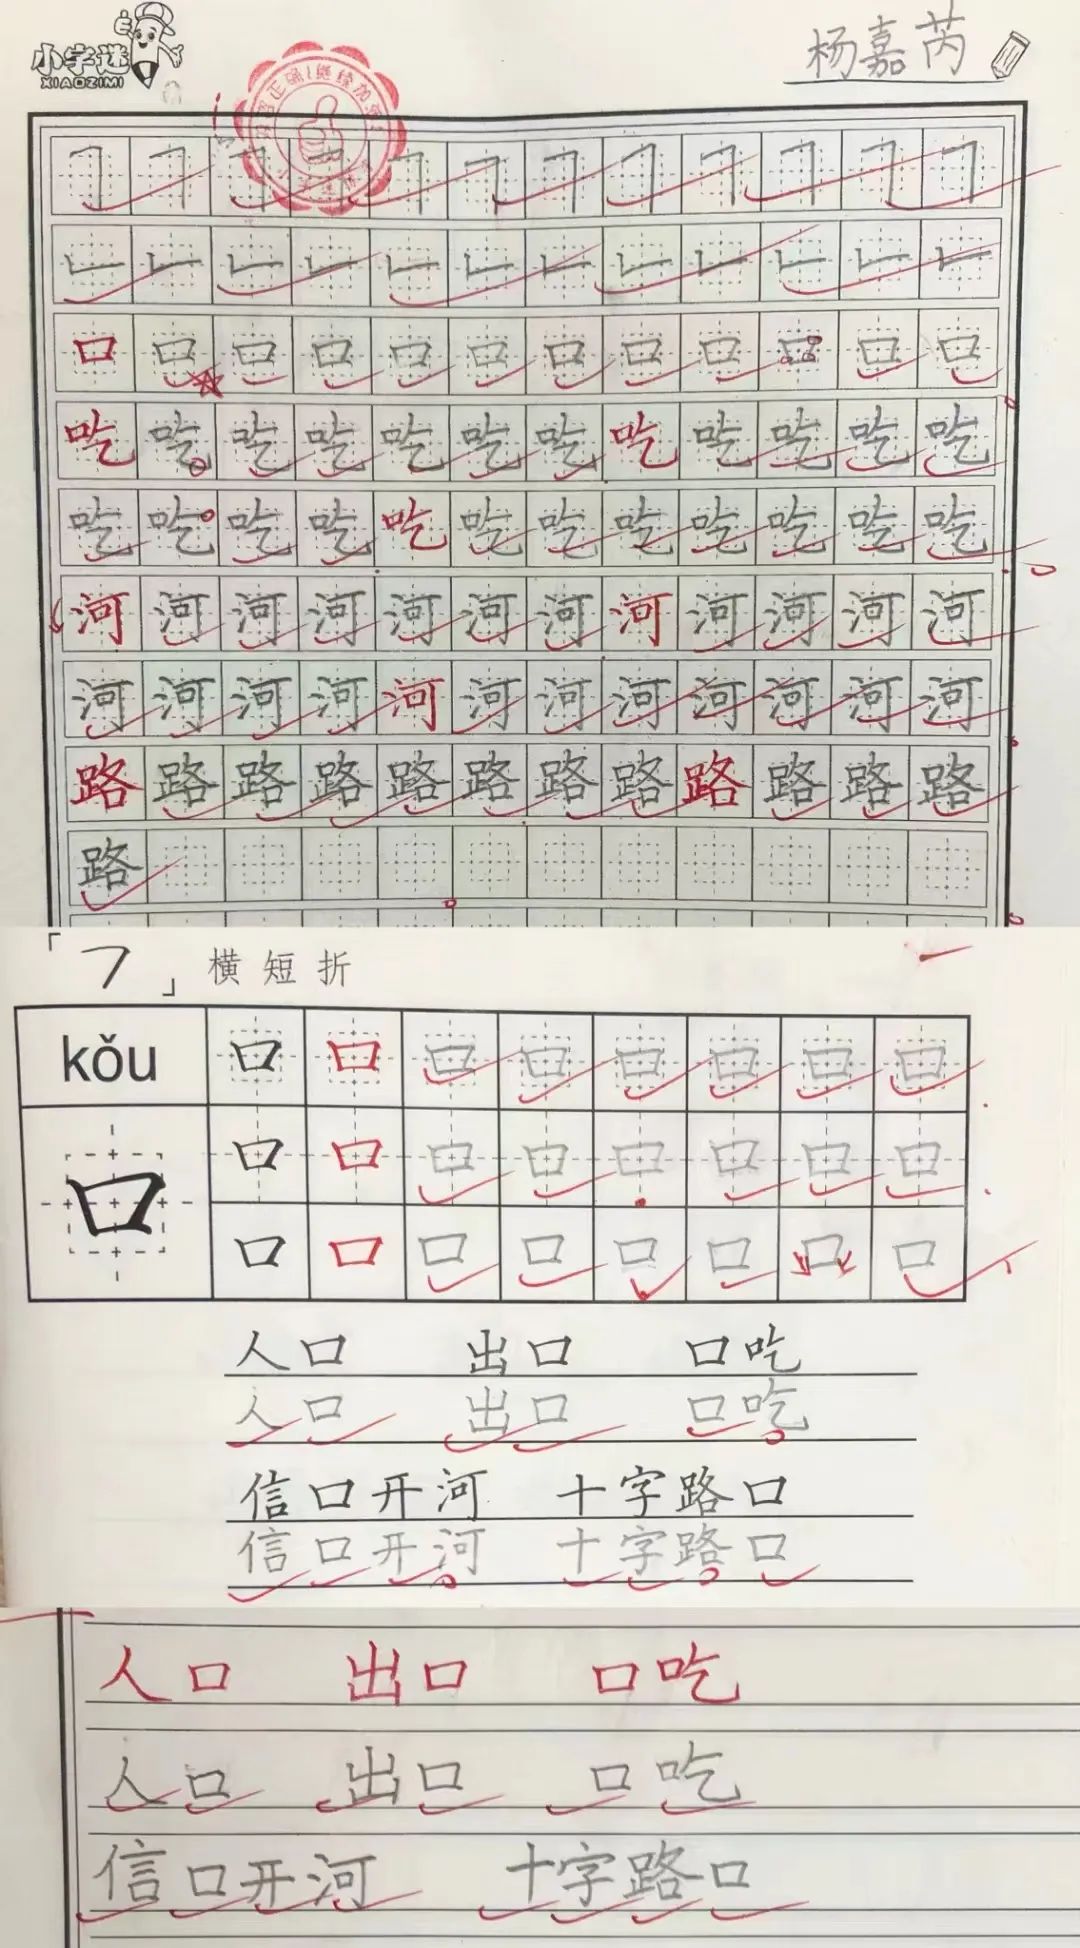 小字迷
XIAOZIMI
杨嘉芮
口 口 口 口 口 口 口 口 口 口 口 口
吃 吃 吃 吃 吃 吃 吃 吃 吃 吃 吃 吃
吃 吃 吃 吃 吃 吃 吃 吃 吃 吃 吃 吃
河 河 河 河 河 河 河 河 河 河 河 河
河 河 河 河 河 河 河 河 河 河 河 河
路 路 路 路 路 路 路 路 路 路 路 路
路
「㇕」 横短折
kǒu 口 口 口 口 口 口 口 口
口 口 口 口 口 口 口 口 口
口 口 口 口 口 口 口 口
人口 出口 口吃
人口 出口 口吃
信口开河 十字路口
信口开河 十字路口
人口 出口 口吃
人口 出口 口吃
信口开河 十字路口